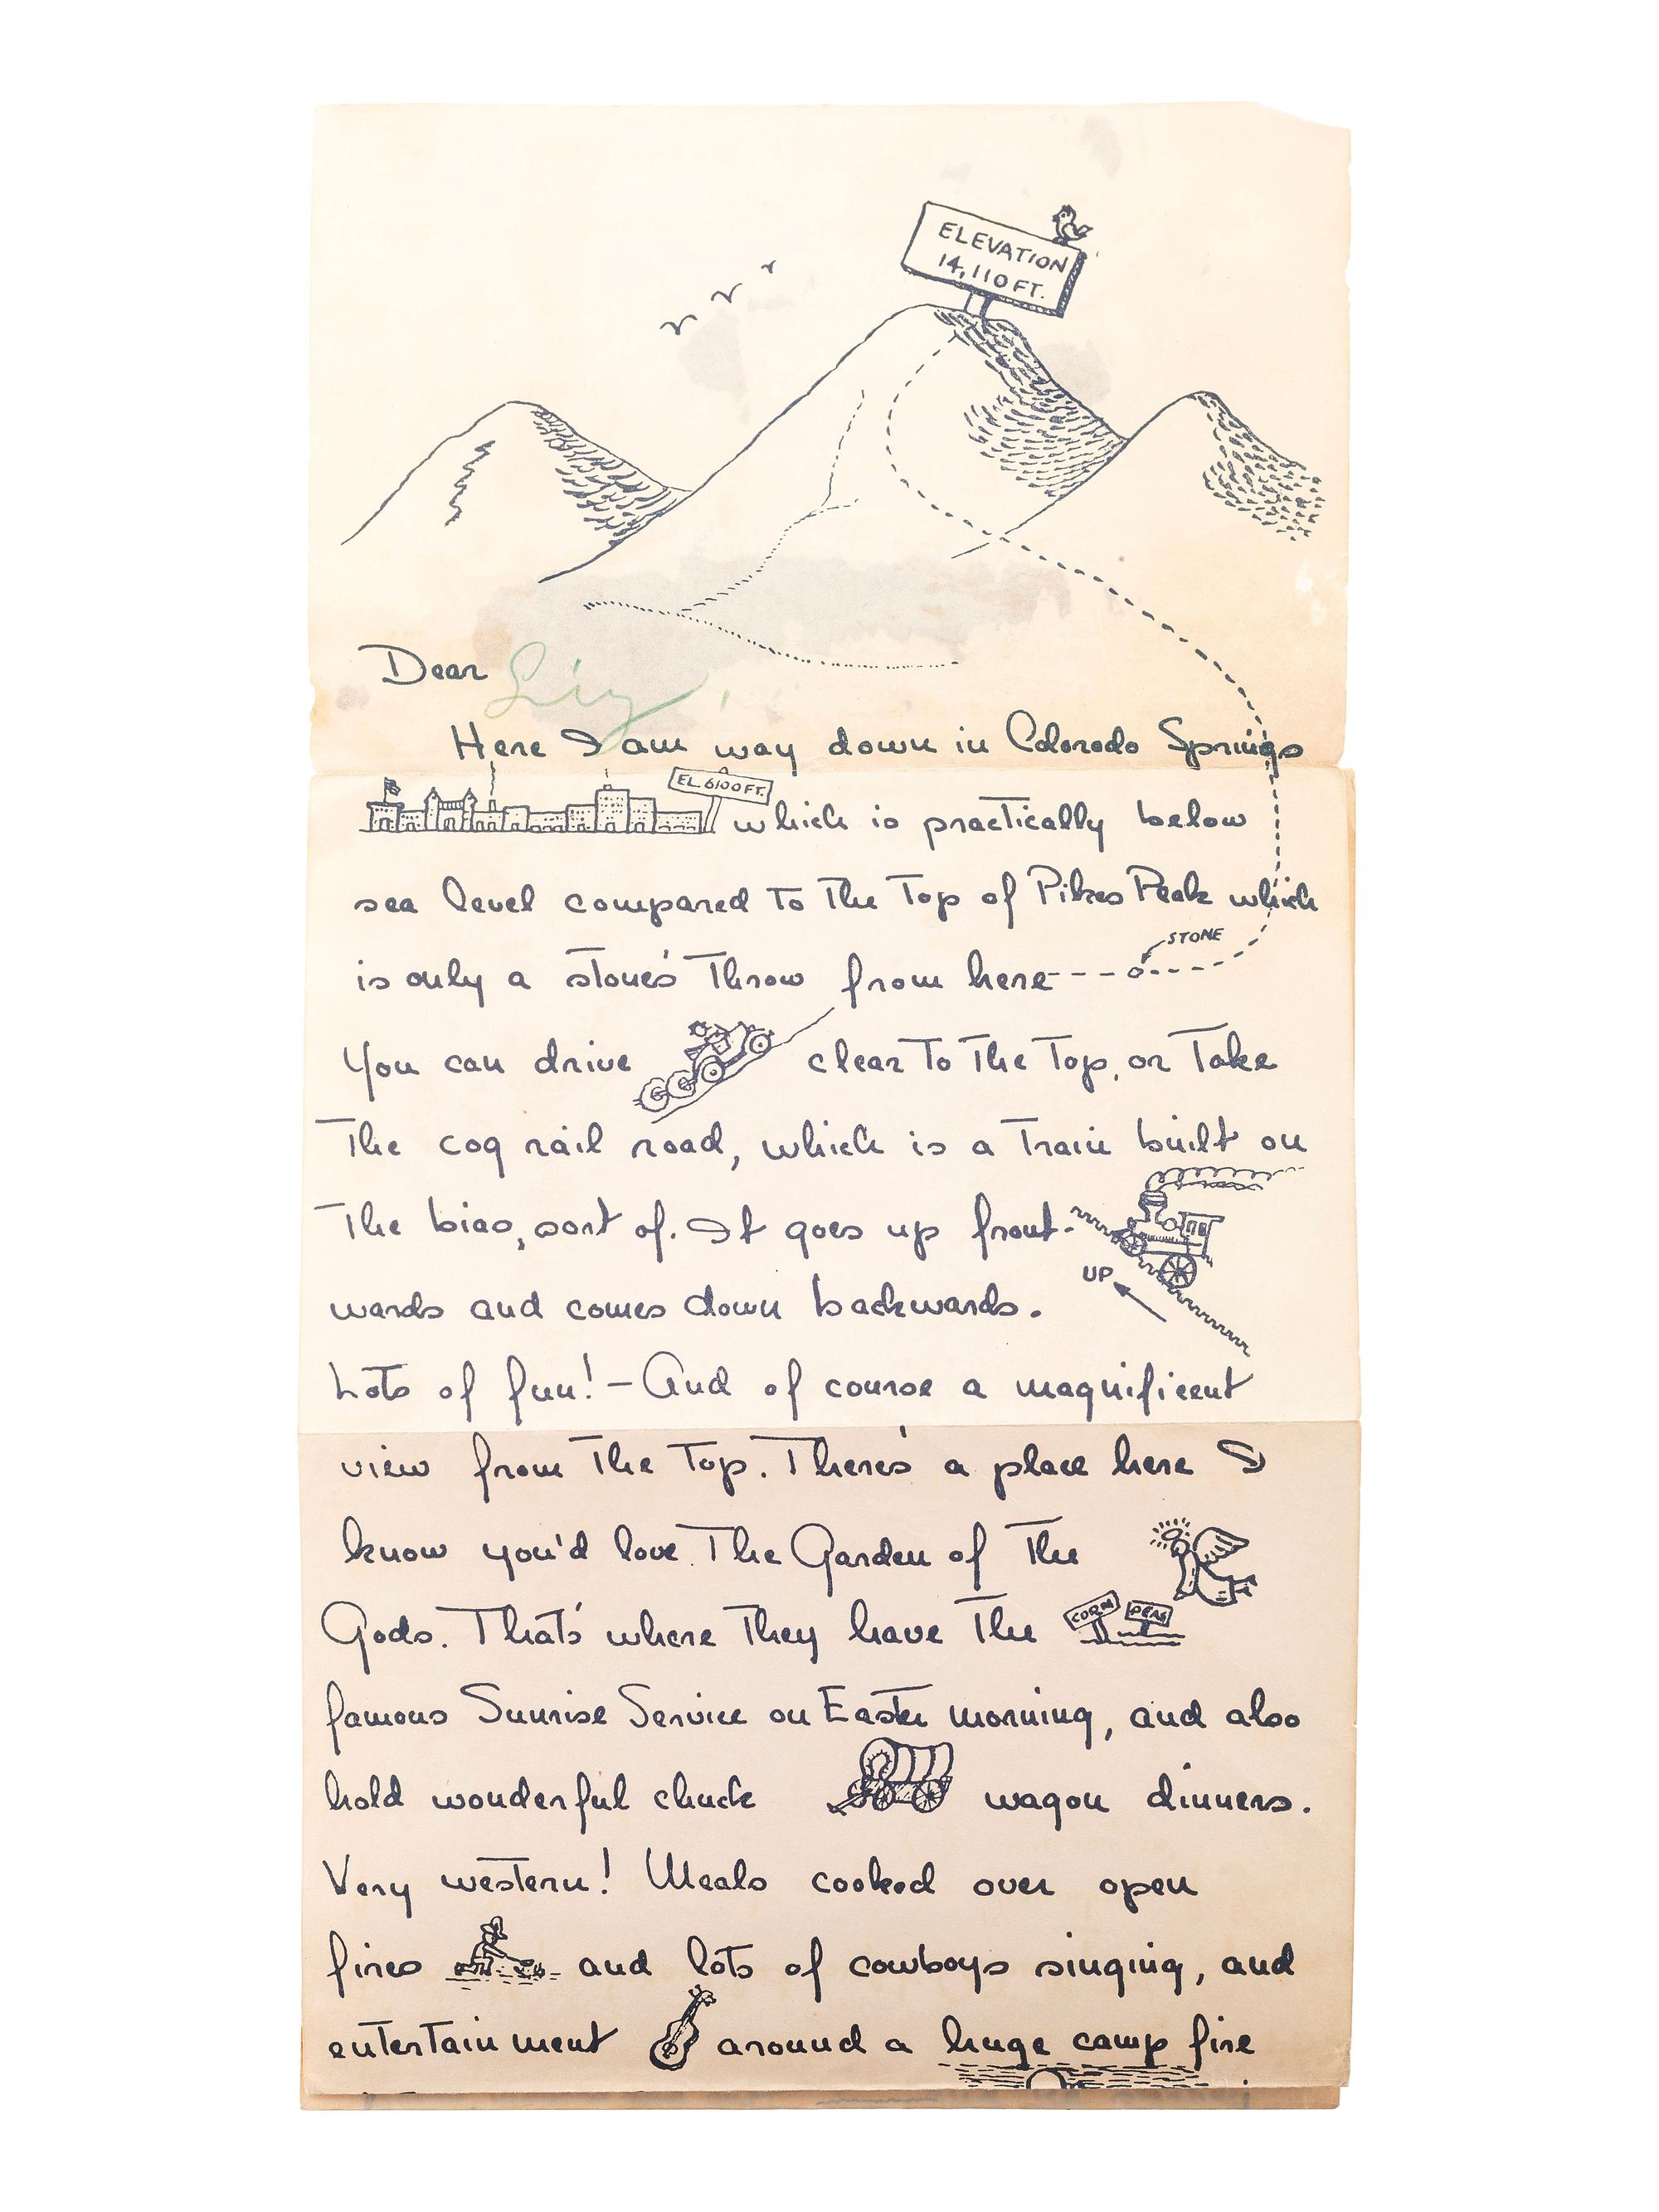 ELEVATION
14,110 FT.
Dear Liz,
Here I am way down in Colorodo Springs
EL. 6100 FT.
which is practically below
sea level compared to the top of Pikes Peak which
STONE
is only a stone's throw from here
You can drive clear to the top, or take
the cog rail road, which is a train built on
the bias, sort of. It goes up front-
UP
wards and comes down backwards.
Lots of fun! - And of course a magnificent
view from the top. There's a place here I
know you'd love. The Garden of the
Gods. That's where they have the
CORN PEAS
famous Sunrise Service on Easter morning, and also
hold wonderful chuck wagon dinners.
Very western! Meals cooked over open
fires and lots of cowboys singing, and
entertainment around a huge camp fire